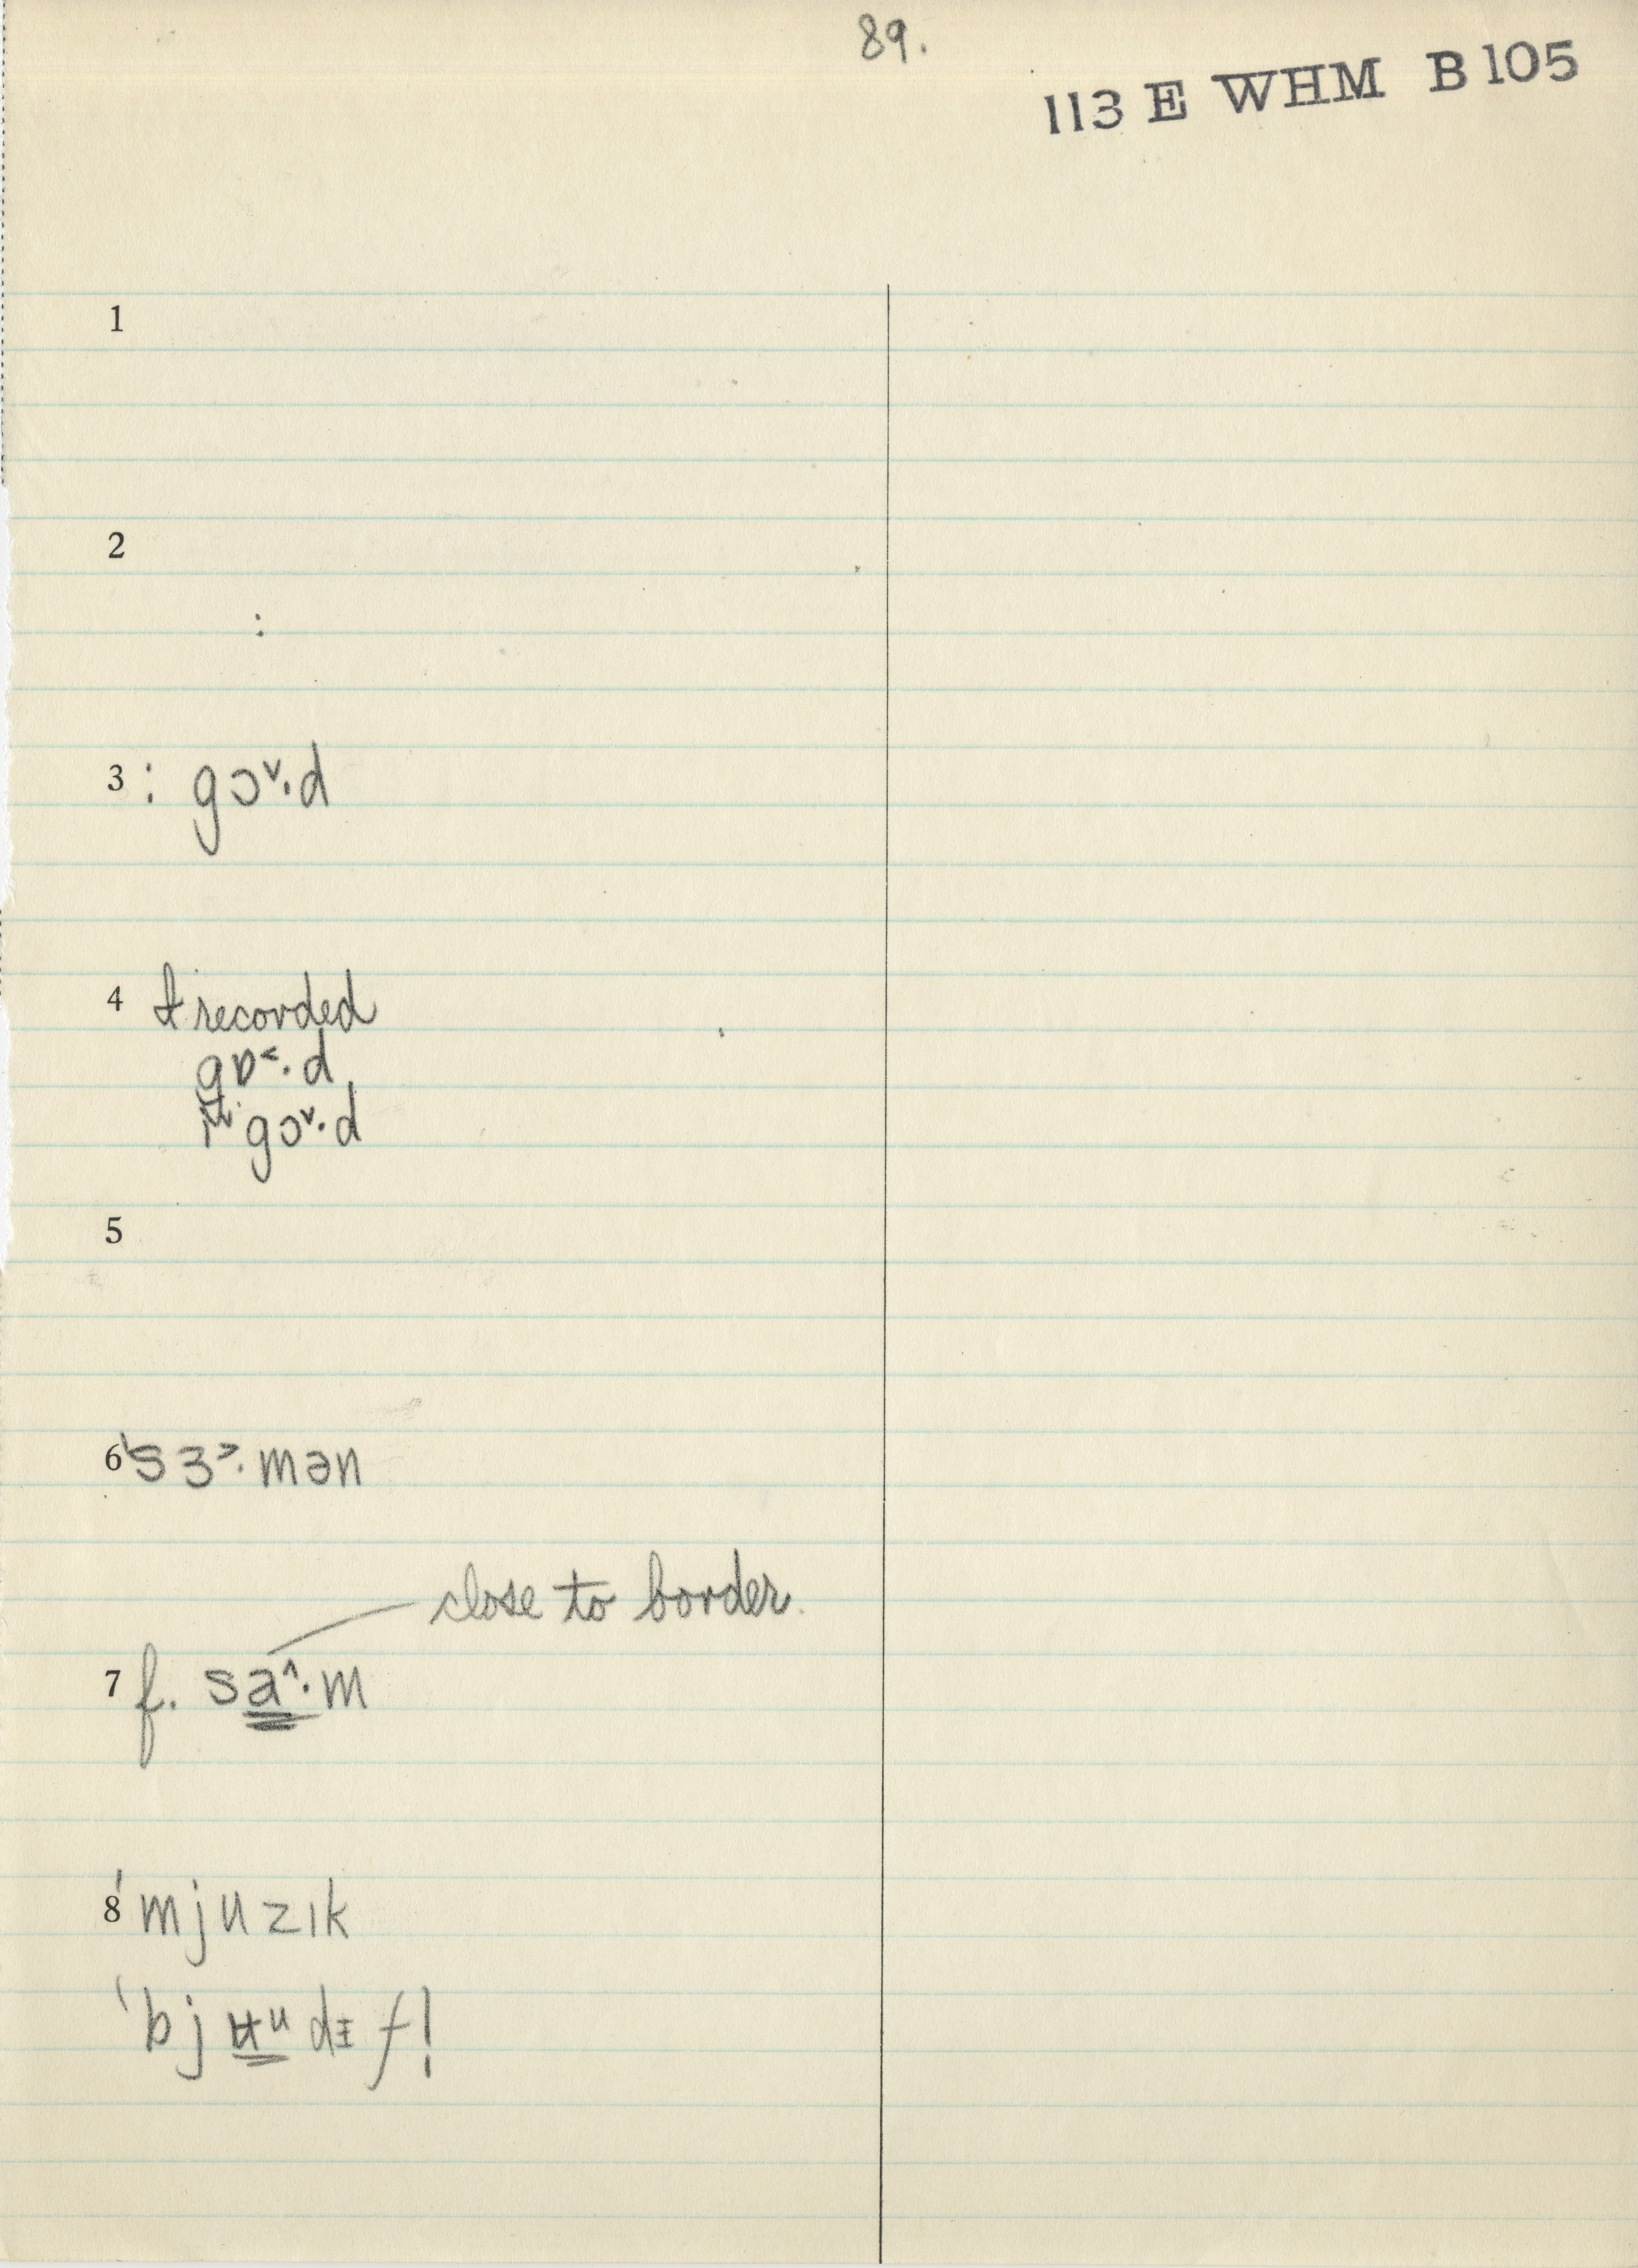 89.
113 E WHM B 105
1
2
:
3 : gɔ˅·d
4 I recorded
gɒ˂·d
gɔ˅·d
5
6 ˈsɜ˃·mən
close to border
7 f. sa˄·m
8 ˈmjuzɪk
ˈbj ʉᵘ d f!